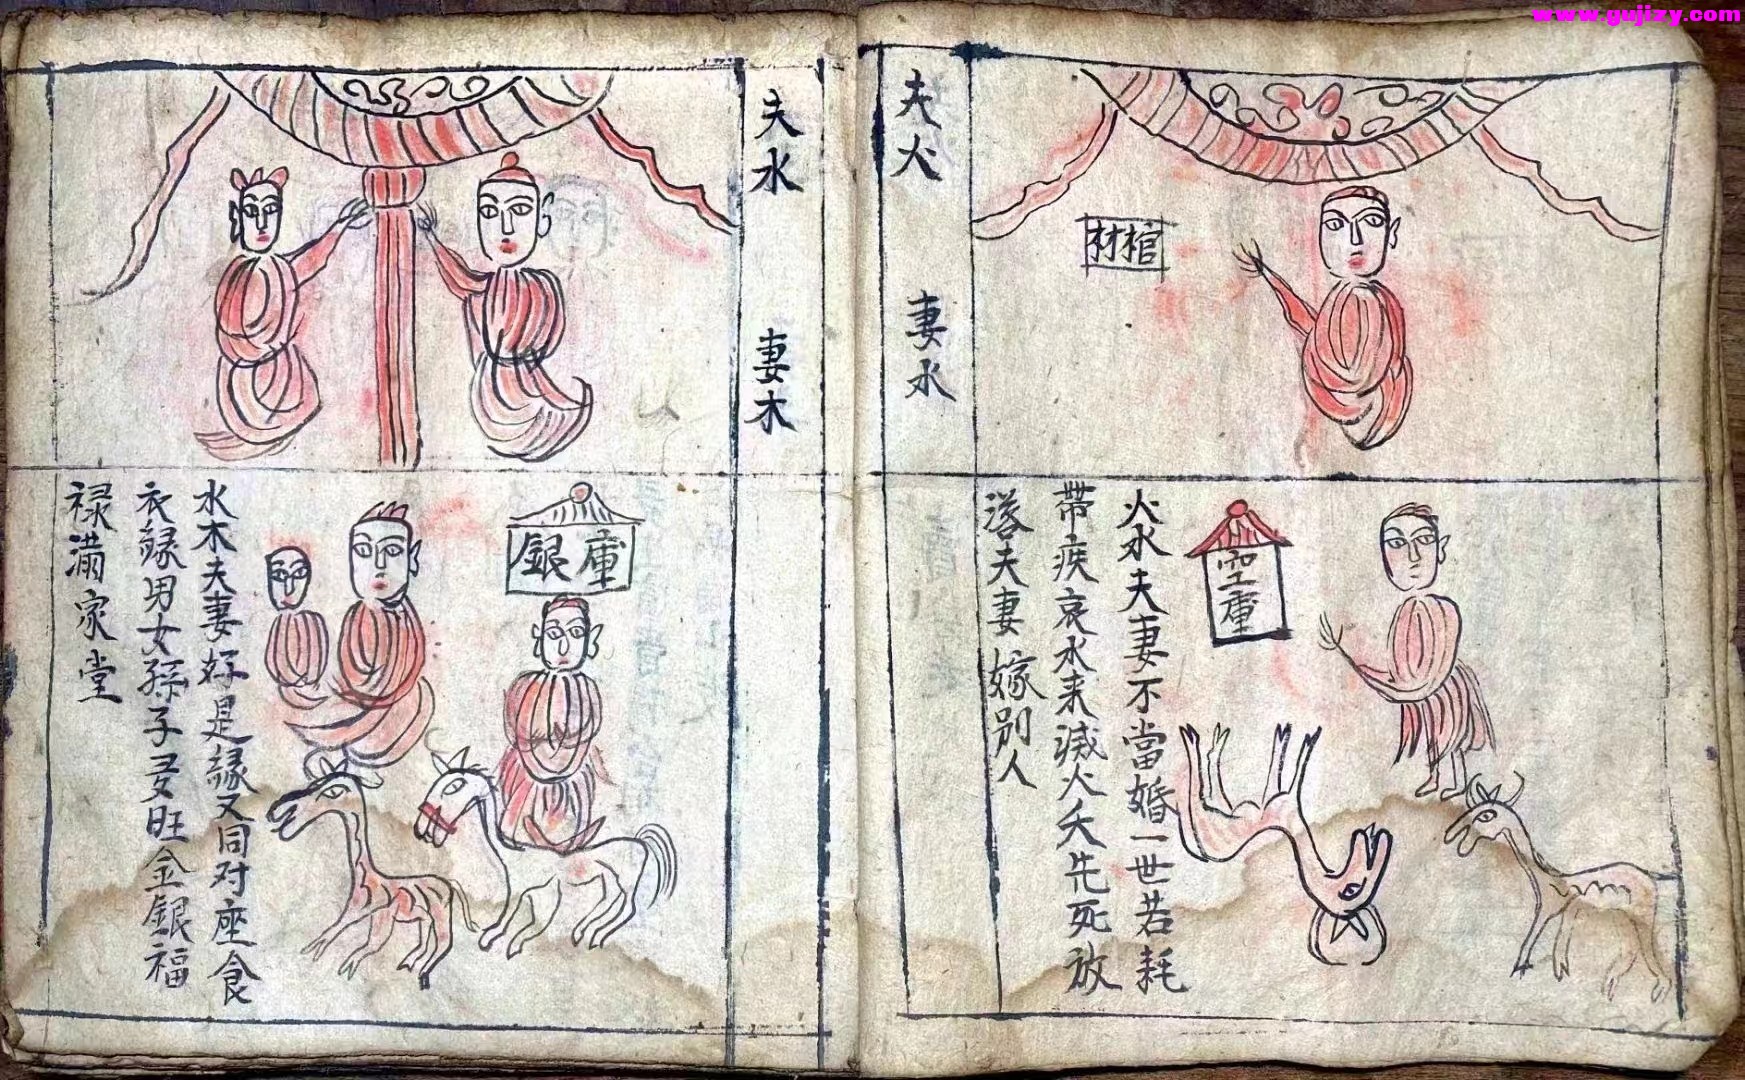 www.gujizy.com
夫火　妻水
棺材
空庫
火水夫妻不當婚一世若耗
帶疾哀水来滅火夭先死放
落夫妻嫁别人
夫水　妻木
銀庫
水木夫妻好是緣又同对座食
衣緣男女孫子多旺金銀福
禄满家堂